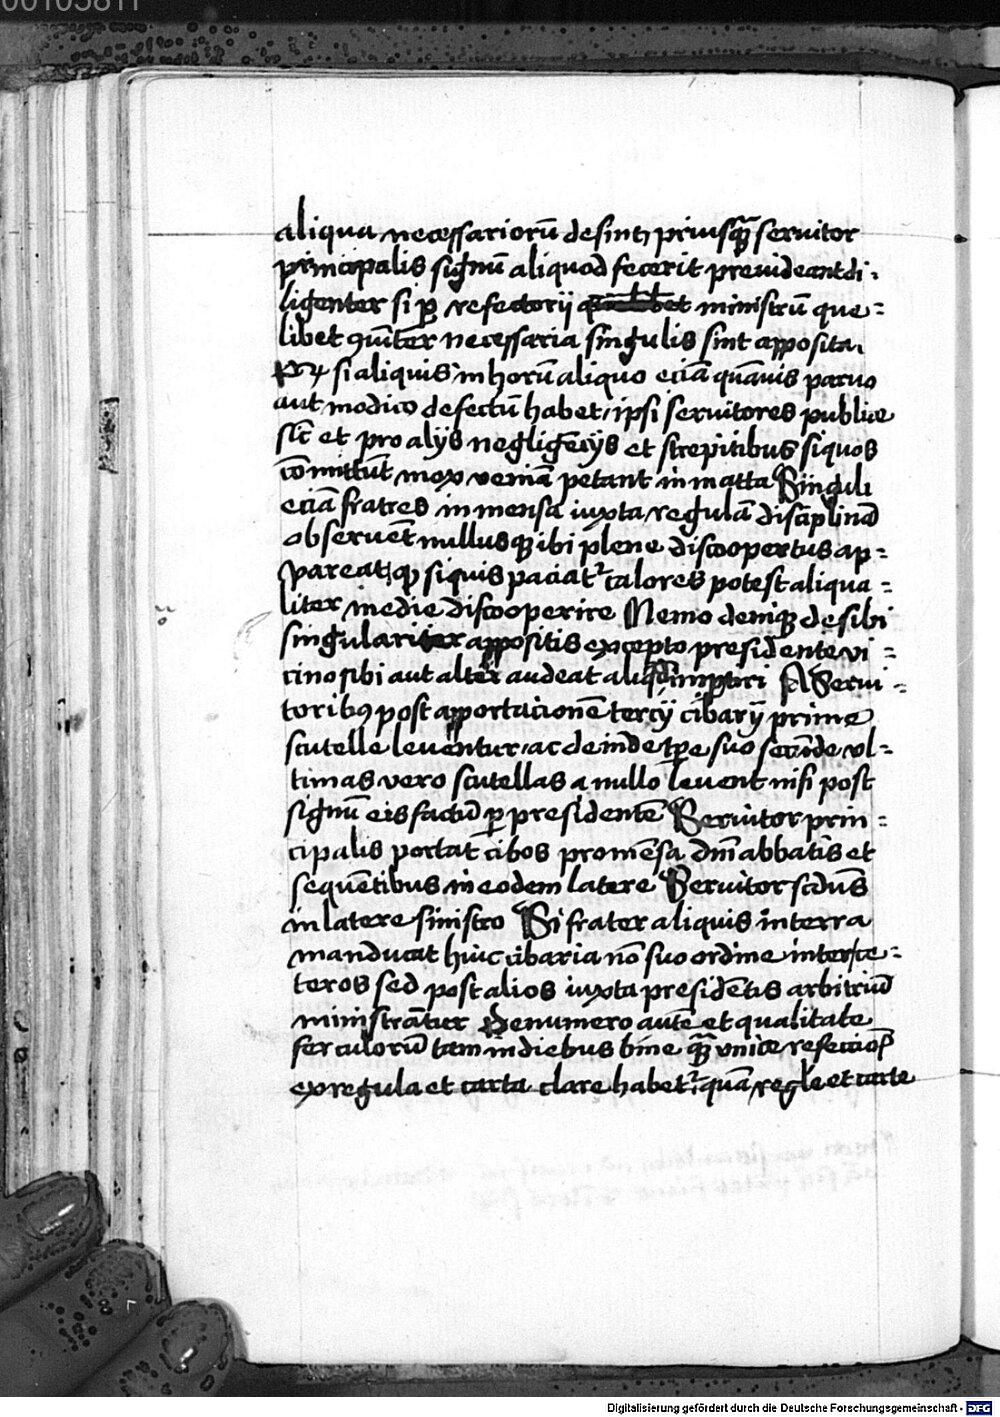 00105811
aliqua necessariorū desint, priusq̄ȝ seruitor
principalis signū aliquod fecerit preuideant di=
ligenter si ꝑ refectorij ministrū que=
libet necessaria singulis sint apposita.
si aliquis in horū aliquo eciā quāuis paruo
aut modico defectū habet, ipsi seruitores publice
sic̄ et pro alijs negligēcijs et strepitibus siquos
cōmittūt mox veniā petant in matta Singuli
eciā fratres in mensa iuxta regulā disciplinā
obseruēt nullusqȝ ibi plene discoopertus ap=
pareat, siquis paciat᷑ calores potest aliqua=
liter medie discooperire Nemo deniqȝ de sibi
singulariter appositis excepto presidente vi=
cino sibi aut alteri audeat A Serui=
toribꝯ post apportacionē tercij cibarij prime
scutelle leuentur, ac deinde tꝑe suo secūde, vl=
timas vero scutellas a nullo leuent nisi post
signū eis factū ꝑ presidentē Seruitor prin=
cipalis portat cibos pro mēsa dn̄i abbatis et
sequētibus in eodem latere Seruitor scd̄us
in latere sinistro Si frater aliquis in terra
manducat huic cibaria nō suo ordine inter ce=
teros sed post alios iuxta presidētis arbitriū
ministrātur De numero autē et qualitate
ferculorū tam in diebus bine q̄ȝ vnice refectiōis
ex regula et carta clare habet᷑, quā regl̄e et carte
Digitalisierung gefördert durch die Deutsche Forschungsgemeinschaft - DFG